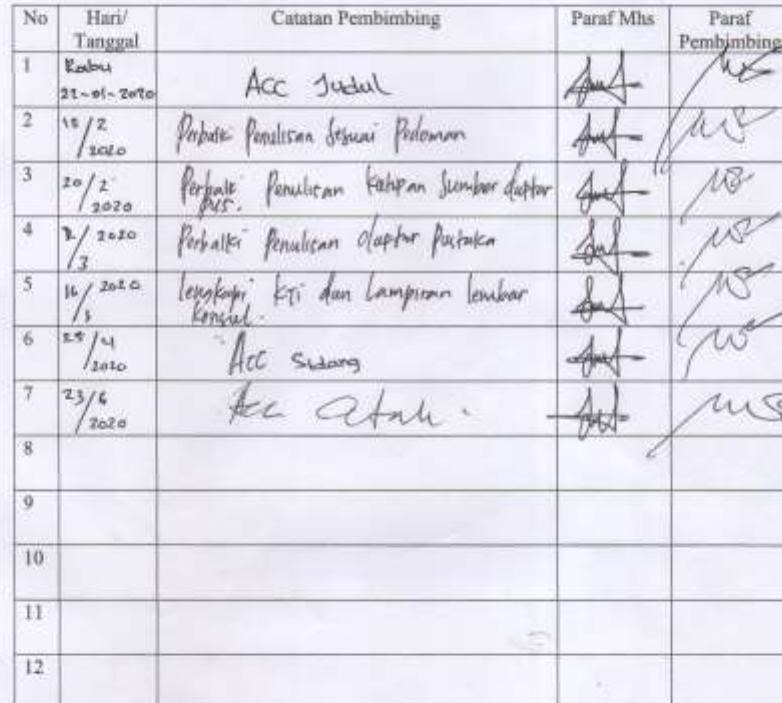 No Hari/ Tanggal Catatan Pembimbing Paraf Mhs Paraf Pembimbing
1 Rabu 22-01-2020 Acc Judul
2 18/2 2020 Perbaiki Penulisan Sesuai Pedoman
3 20/2 2020 Perbaiki Penulisan Kutipan Sumber daftar pus.
4 2020 /3 Perbaiki Penulisan daftar Pustaka
5 16/3 2020 lengkapi KTI dan Lampiran lembar konsul.
6 /4 2020 Acc Sidang
7 23/6 2020 Acc Cetak.
8
9
10
11
12